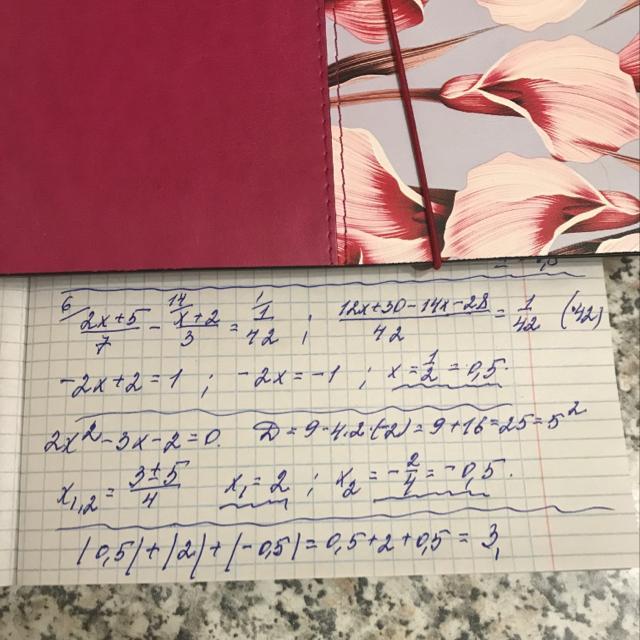 6/ 2x+5/7 - 14/ x+2/3 = 1/ 1/42 ; 12x+30-14x-28/42 = 1/42 (42)
-2x+2=1 ; -2x=-1 ; x=1/2=0,5.
2x²-3x-2=0. D=9-4.2(-2)=9+16=25=5²
x1,2=3±5/4 x1=2 ; x2=-2/4=-0,5.
|0,5|+|2|+|-0,5|=0,5+2+0,5=3,